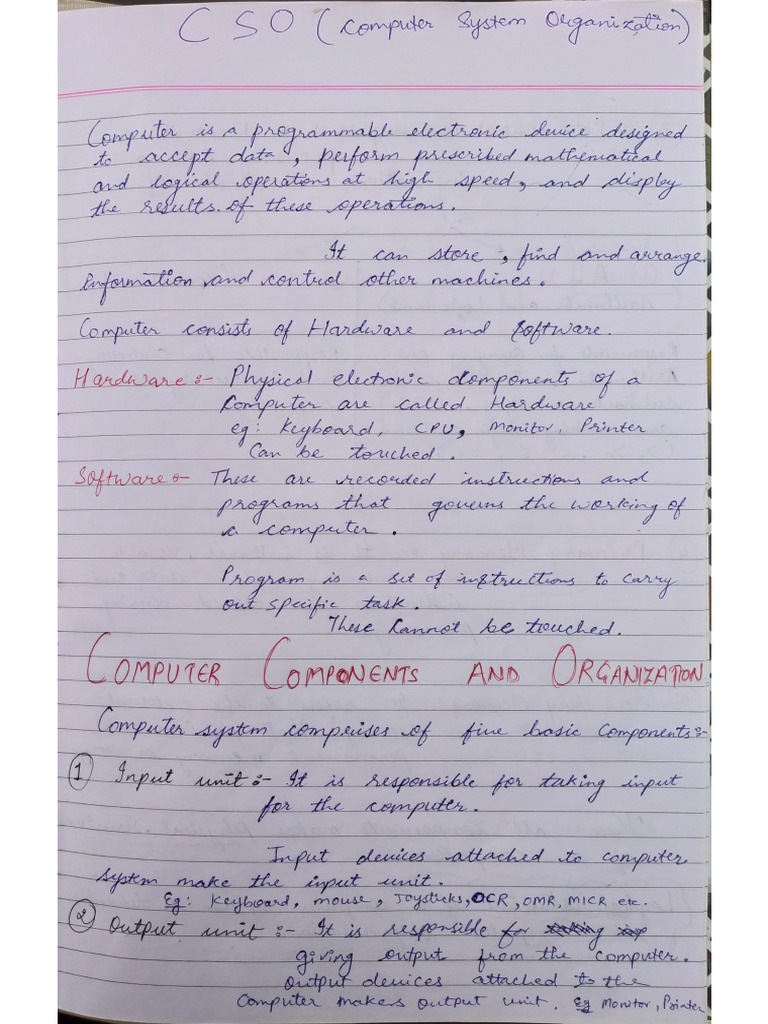 CSO (Computer System Organization)
Computer is a programmable electronic device designed
to accept data, perform prescribed mathematical
and logical operations at high speed, and display
the results of these operations.
It can store, find and arrange
information and control other machines.
Computer consists of Hardware and Software.
Hardware :- Physical electronic components of a
Computer are called Hardware
eg: Keyboard, CPU, Monitor, Printer
Can be touched.
Software :- These are recorded instructions and
programs that governs the working of
a computer.
Program is a set of instructions to carry
out specific task.
These Cannot be touched.
COMPUTER COMPONENTS AND ORGANIZATION
Computer system comprises of five basic Components:-
① Input unit :- It is responsible for taking input
for the computer.
Input devices attached to computer
system make the input unit.
Eg: Keyboard, mouse, Joysticks, OCR, OMR, MICR etc.
② Output unit :- It is responsible for
giving output from the computer.
output devices attached to the
Computer makes output unit. Eg Monitor, Printer